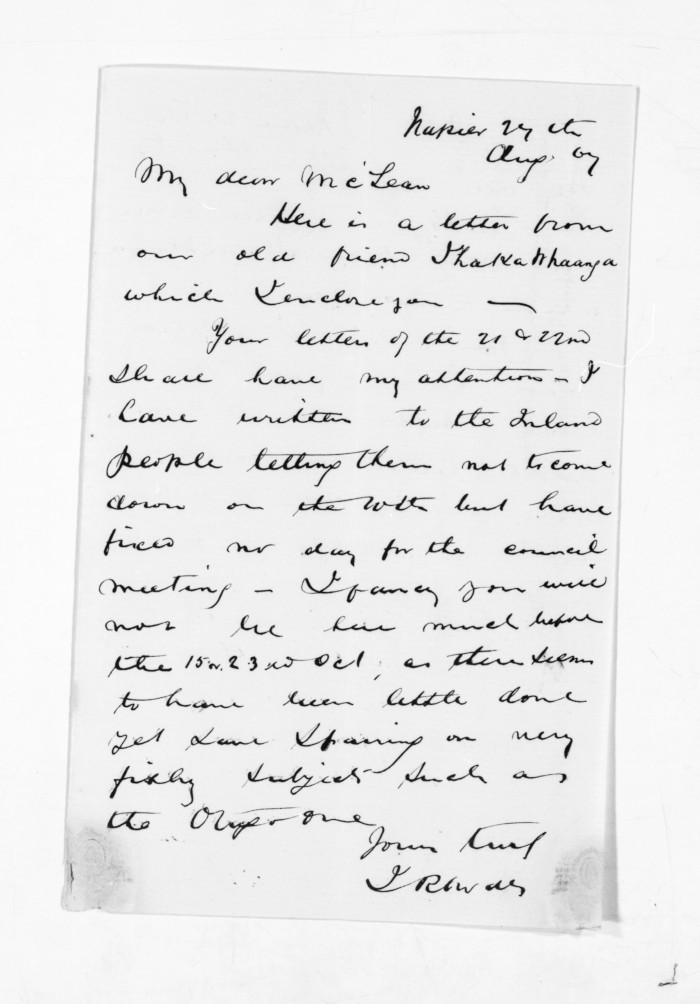 Napier 27th
Aug. 67
My dear McLean
Here is a letter from
our old friend Ihaka Whaanga
which I enclose you —
Your letters of the 21 & 22nd
shall have my attention – I
have written to the Inland
people telling them not to come
down on the 10th but have
fixed no day for the council
meeting – I fancy you will
not be here much before
the 15 or 23rd Oct, as there seems
to have been little done
yet save sparring on very
fishy subjects such as
the Otago one
Yours truly
J Rhodes